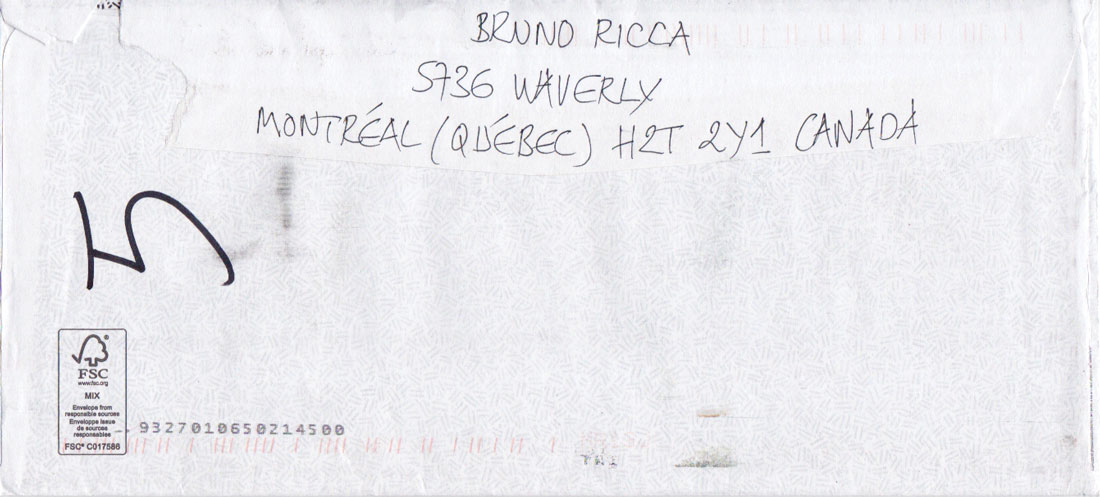 BRUNO RICCA
5736 WAVERLY
MONTRÉAL (QUÉBEC) H2T 2Y1 CANADA
FSC
www.fsc.org
MIX
Envelope from
responsible sources
Enveloppe issue
de sources
responsables
FSC® C017586
9327010650214500